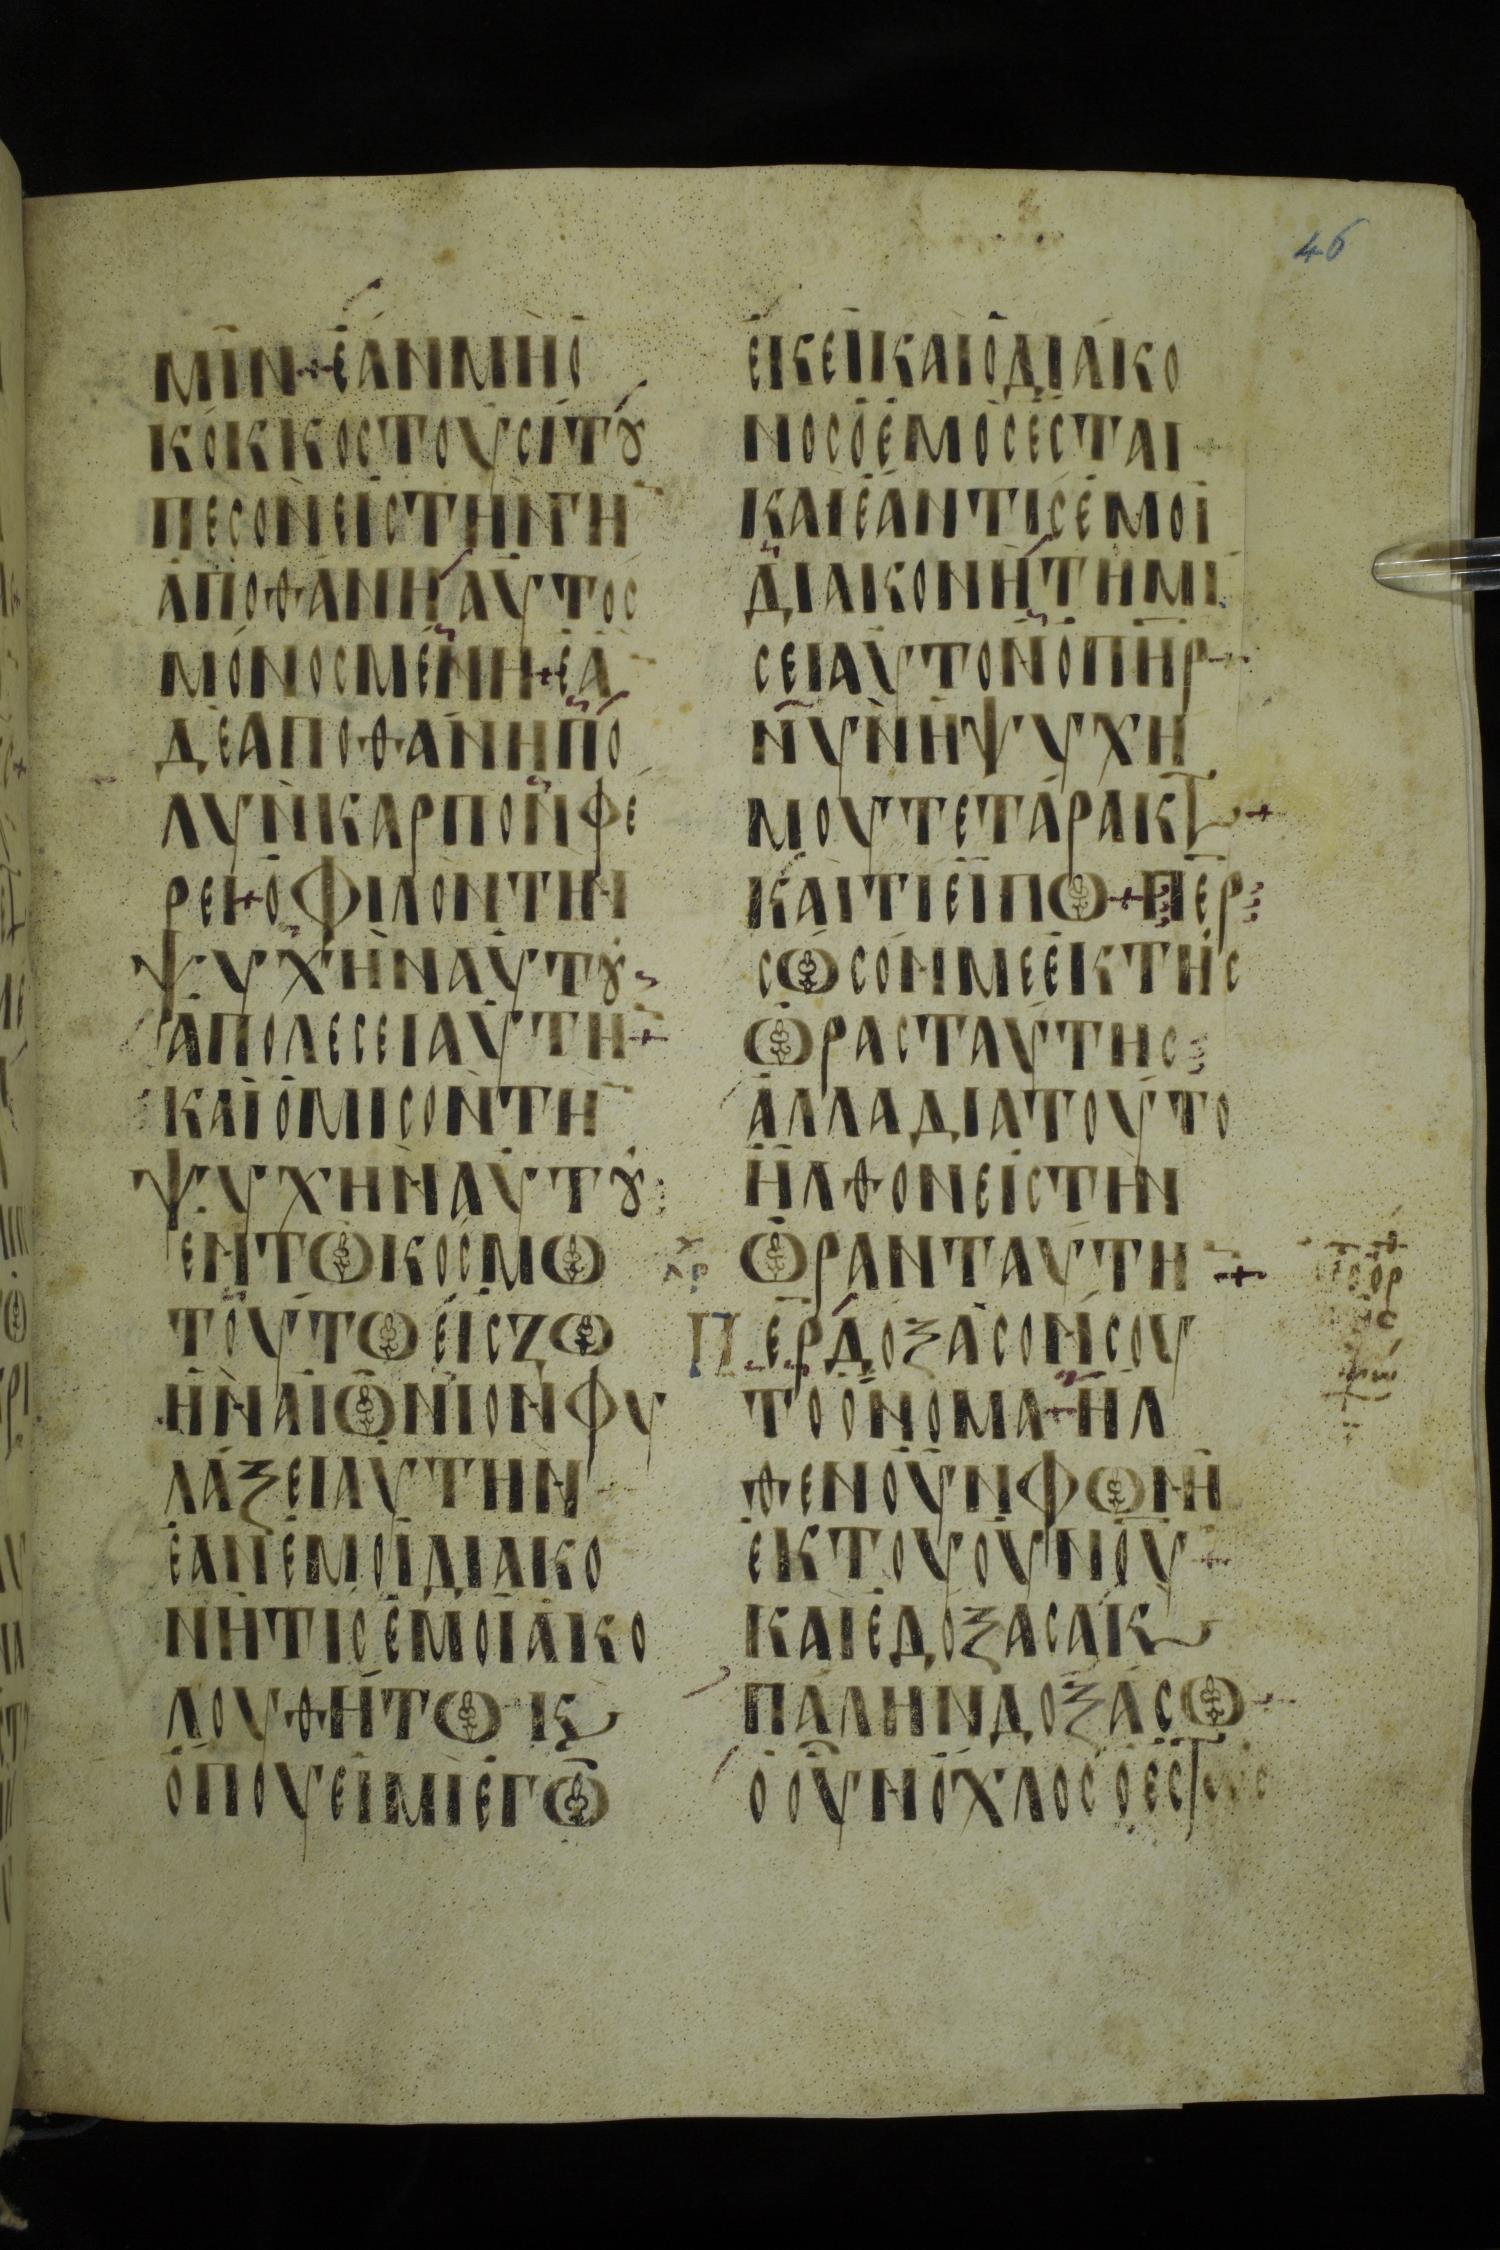 46
ΜΙΝ+ΕΑΝΜΗΟ
ΚΟΚΚΟСΤΟΥСΙΤȢ
ΠΕСΟΝΕΙСΤΗΝΓΗ
ΑΠΟΘΑΝΗΑΥΤΟС
ΜΟΝΟСΜΕΝΗ+ΕΑ
ΔΕΑΠΟΘΑΝΗΠΟ
ΛΥΝΚΑΡΠΟΝΦΕ
ΡΕΙ+ΟΦΙΛΟΝΤΗΝ
ΨΥΧΗΝΑΥΤȢ
ΑΠΟΛΕСΕΙΑΥΤΗ+
ΚΑΙΟΜΙСΟΝΤΗ
ΨΥΧΗΝΑΥΤȢ
ΕΝΤΩΚΟСΜΩ
ΤΟΥΤΩΕΙСΖΩ
ΗΝΑΙΩΝΙΟΝΦΥ
ΛΑΞΕΙΑΥΤΗΝ
ΕΑΝΕΜΟΙΔΙΑΚΟ
ΝΗΤΙСΕΜΟΙΑΚΟ
ΛΟΥΘΗΤΩ Κ
ΟΠΟΥΕΙΜΙΕΓΩ
ΕΚΕΙΚΑΙΟΔΙΑΚΟ
ΝΟСΟΕΜΟСΕСΤΑΙ
ΚΑΙΕΑΝΤΙСΕΜΟΙ
ΔΙΑΚΟΝΗΤΗΜΙ
СΕΙΑΥΤΟΝΟΠΗΡ
ΝΥΝΗΨΥΧΗ
ΜΟΥΤΕΤΑΡΑΚΤ+
ΚΑΙΤΙΕΙΠΩ+ΠΕΡ
СΩСΟΝΜΕΕΚΤΗС
ΩΡΑСΤΑΥΤΗС
ΑΛΛΑΔΙΑΤΟΥΤΟ
ΗΛΘΟΝΕΙСΤΗΝ
ΩΡΑΝΤΑΥΤΗ+
ΠΕΡΔΟΞΑСΟΝСΟΥ
ΤΟΟΝΟΜΑ+ΗΛ
ΘΕΝΟΥΝΦΩΝΗ
ΕΚΤΟΥΟΥΝΟΥ
ΚΑΙΕΔΟΞΑСΑΚ
ΠΑΛΗΝΔΟΞΑСΩ
ΟΟΥΝΟΧΛΟСΟΕСΤ